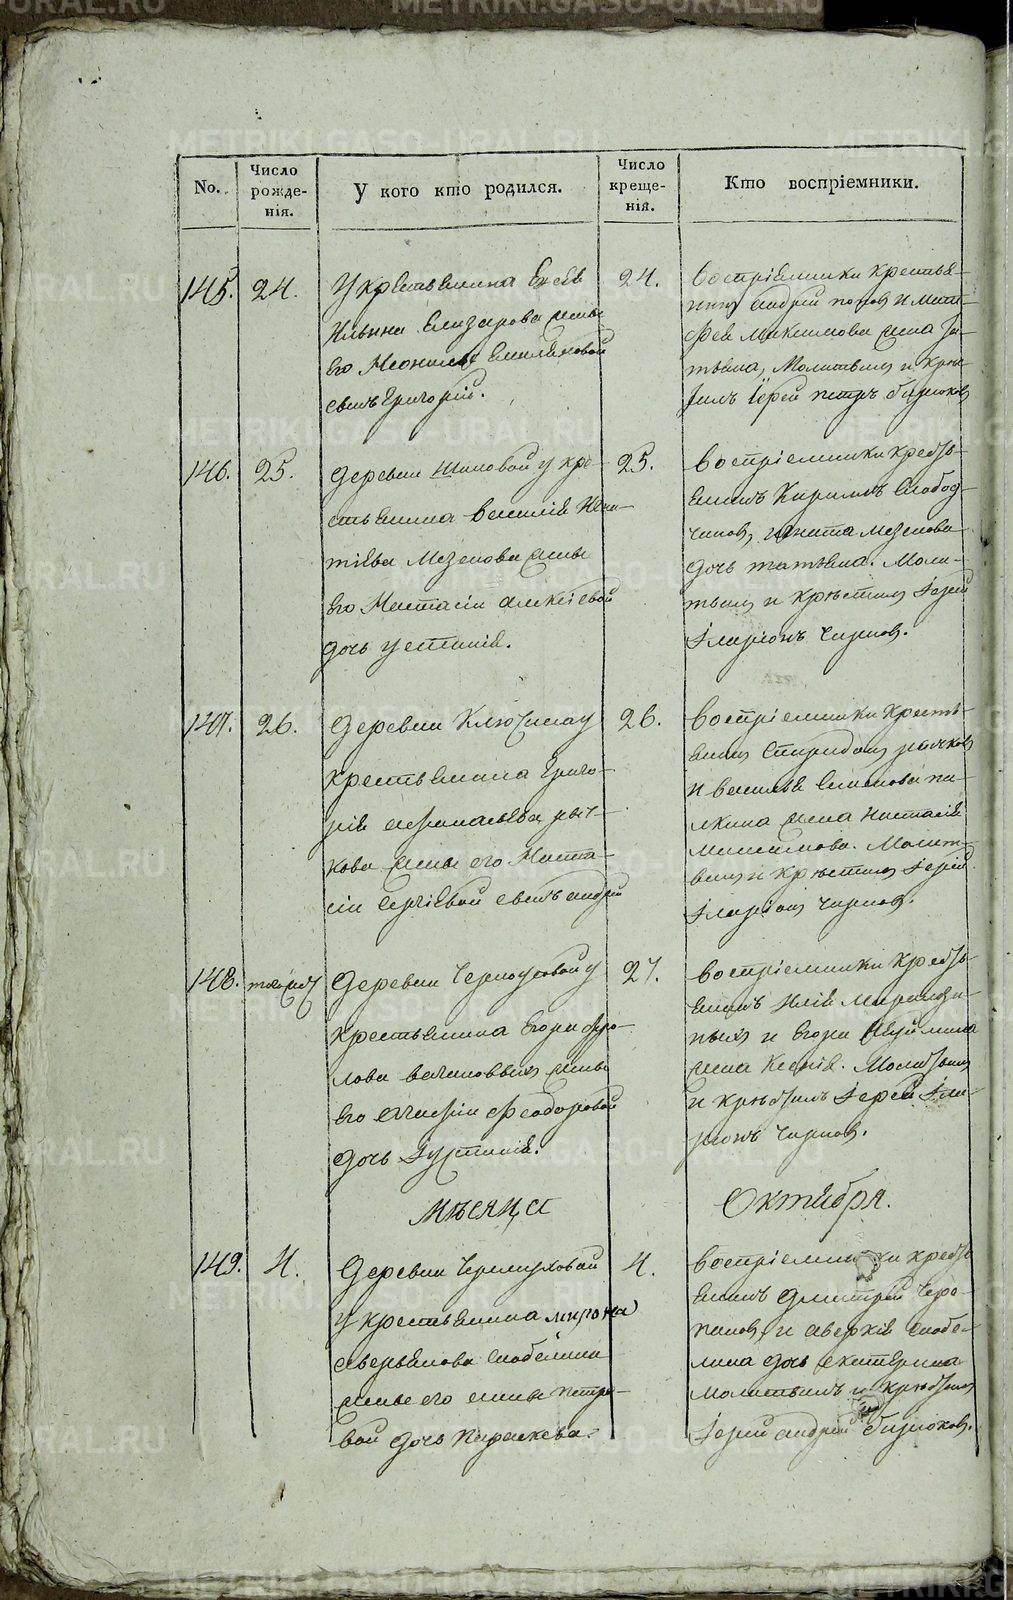 No.
Число рожде- нія.
У кого кто родился.
Число креще- нія.
Кто воспріемники.
145. 24.
У крестьянина
Ильина Елизарова жены
его Неонилы Емельяновой
сынъ Григорій.
24.
Воспріемники крестья-
нинъ Андрей попов и Мат-
фея Максимова жена
Молитвилъ и крес-
тилъ Іерей петръ бирюков
146. 25.
деревни Шиповой у кре-
стьянина василія Игна-
тіева Мезенова жены
его Настасіи алексіевой
дочь устинія.
25.
Воспріемники крестья-
нинъ Кирилъ Слобод-
чиков, игната мезенова
дочь татьяна. Моли-
твилъ и крѣстилъ Іерей
Іларіонъ Чирков.
147. 26.
деревни Ключика у
крестьянина Григо-
рія афанасьева рыч-
кова жены его Наста-
сіи Сергіевой сынъ андрей
26.
Воспріемники кресть-
янинъ Спиридонъ рычков
и василья Семенова па-
лкина жена Настасія
Максимова. Молит-
вилъ и крѣстилъ Іерей
Іларіонъ Чирков.
148.
деревни Черноусовой у
крестьянина Егора
жены
его Феодоровой
дочь Іустинія.
27.
Воспріемники крестья-
нинъ Илія
и Егора
жена Ксенія. Молитвилъ
и крѣстилъ Іерей Іла-
ріонъ Чирков.
мѣсяца Октября.
149. 4.
деревни Черемуховой
у крестьянина мирона
аверьянова Скобелина
жены его анны петро-
вой дочь параскева.
4.
Воспріемники крестья-
нинъ дмитрій Черо-
панов, и аверкія скобе-
лина дочь екатерина
молитвилъ и крѣстилъ
Іерей андрей бирюков.
METRIKI.GASO-URAL.RU